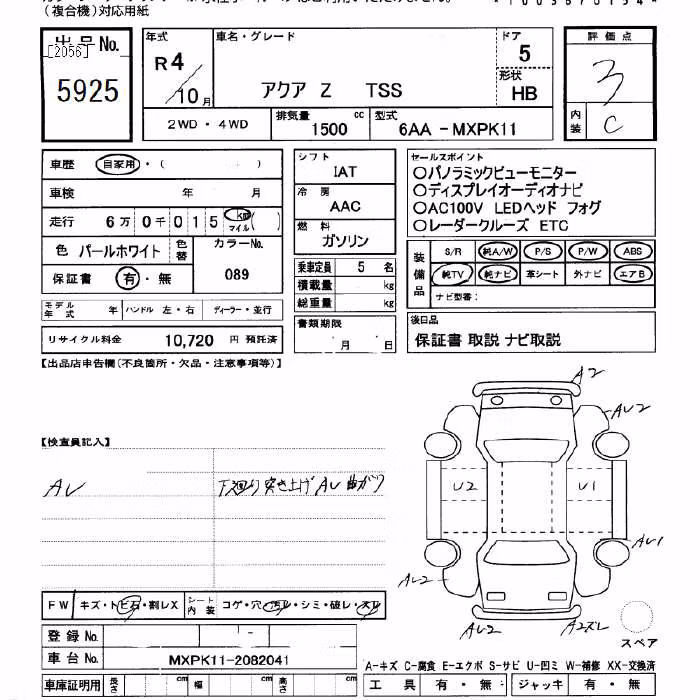 (複合機)対応用紙
出品No.
[2056]
5925
年式
R4/10月
車名・グレード
アクア Z TSS
ドア
5
形状
HB
2WD・4WD
排気量 1500 cc
型式 6AA -MXPK11
評価点
3
内装
C
車歴 自家用・( )
車検 年 月
走行 6万0千015 km マイル( )
色 パールホワイト
色替
カラーNo.
089
保証書 有・無
モデル年式 年 ハンドル 左・右 ディーラー・並行
リサイクル料金 10,720 円 預託済
シフト
IAT
冷房
AAC
燃料
ガソリン
乗車定員 5 名
積載量 kg
総重量 kg
書類期限
月 日
セールスポイント
○パノラミックビューモニター
○ディスプレイオーディオナビ
○AC100V LEDヘッド フォグ
○レーダークルーズ ETC
装備品
S/R 純A/W P/S P/W ABS
純TV 純ナビ 革シート 外ナビ エアB
ナビ型番:
後日品
保証書 取説 ナビ取説
【出品店申告欄(不良箇所・欠品・注意事項等)】
【検査員記入】
AU
下廻り突き上げ AU 曲がり
A2
AU2
U2
U1
AU1
AU2
AU2
A2ズレ
スペア
FW キズ・トビ石・割レX
シート内装 コゲ・穴・汚レ・シミ・破レ・スレ
登録No.
車台No. MXPK11-2082041
車庫証明用 長さ cm 幅 cm 高さ cm
A-キズ C-腐食 E-エクボ S-サビ U-凹ミ W-補修 XX-交換済
工具 有・無 ジャッキ 有・無